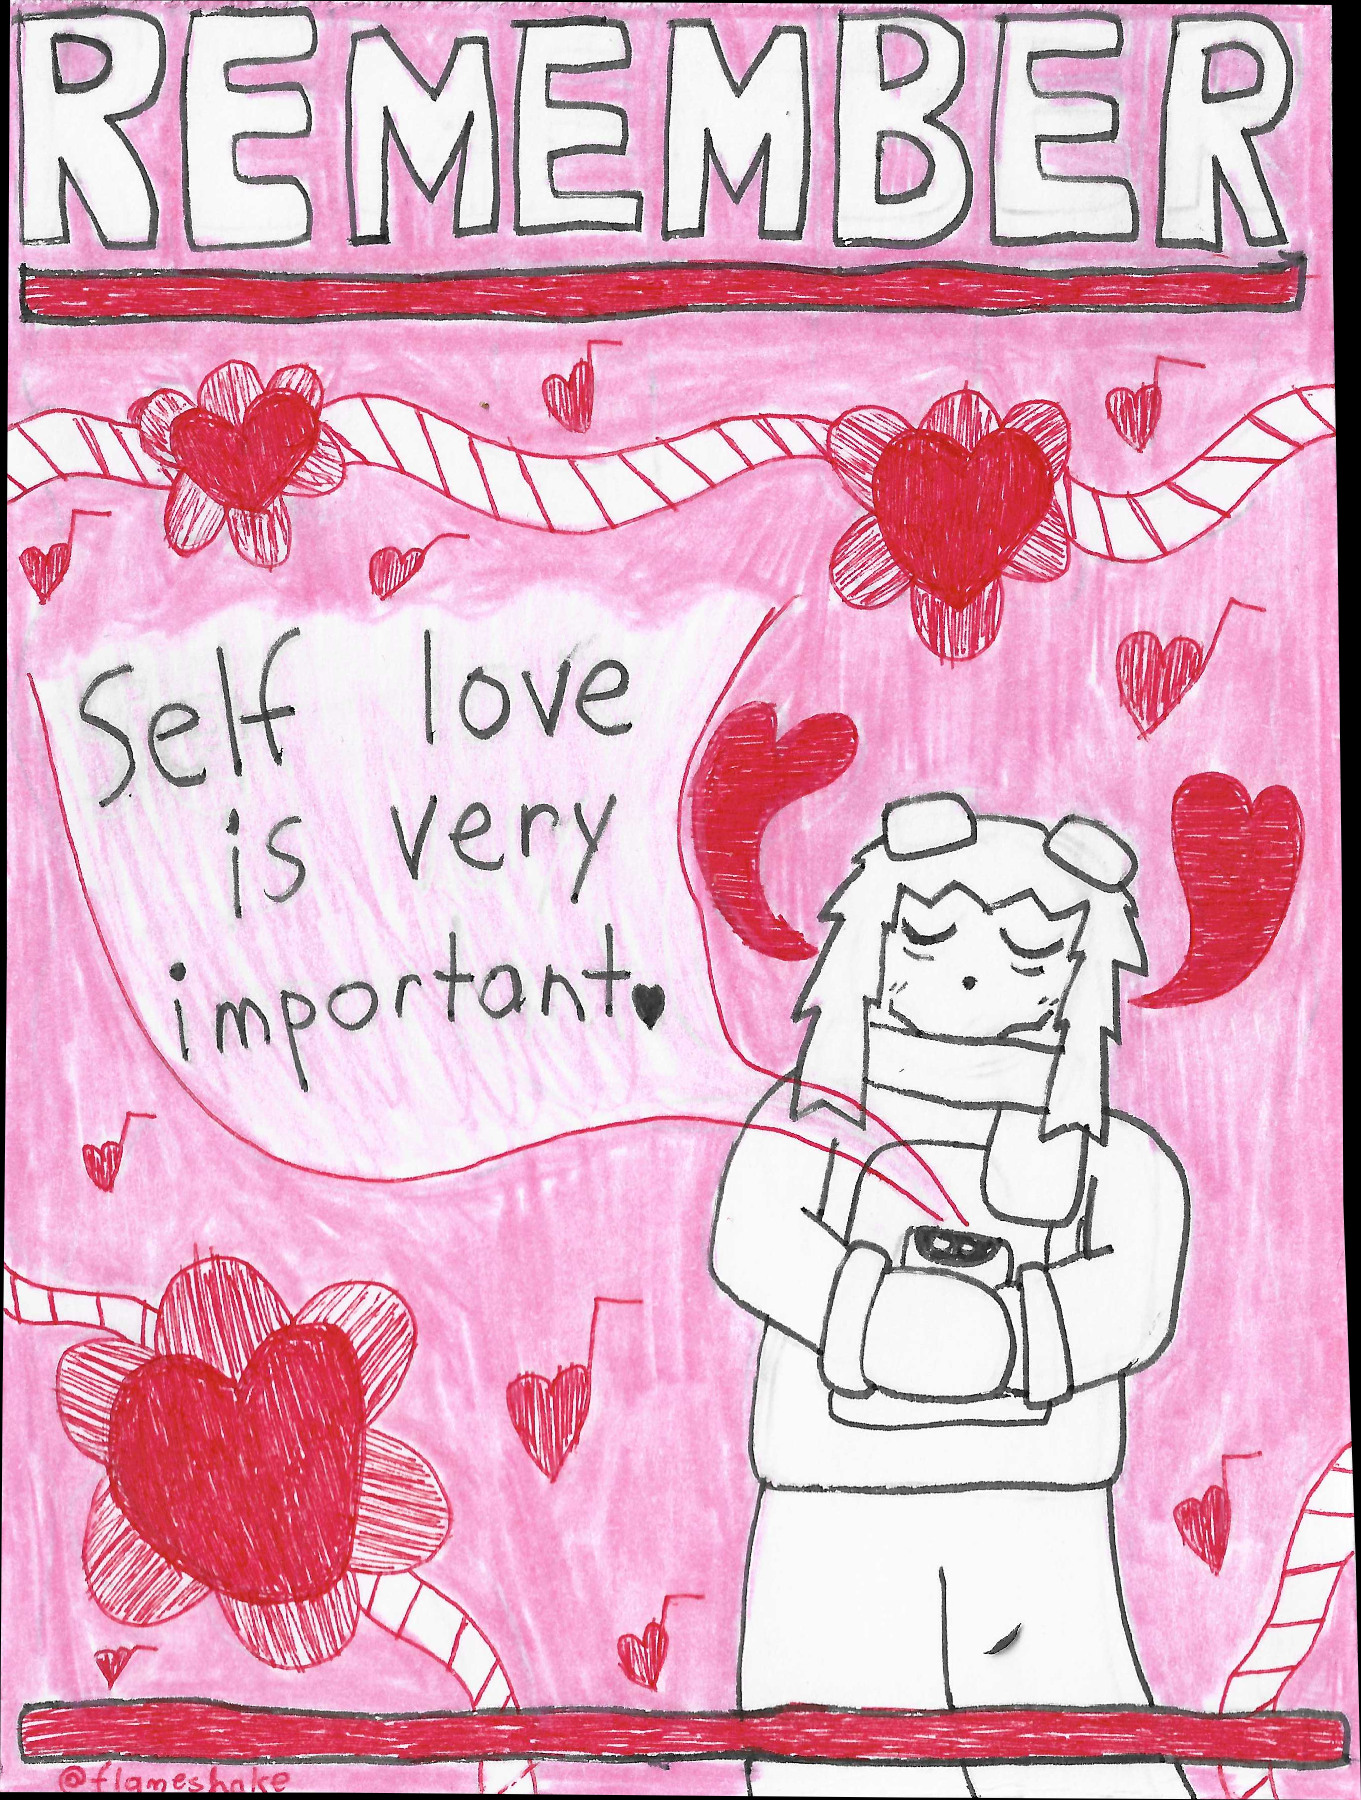 REMEMBER
Self love
is very
important
@flameshake